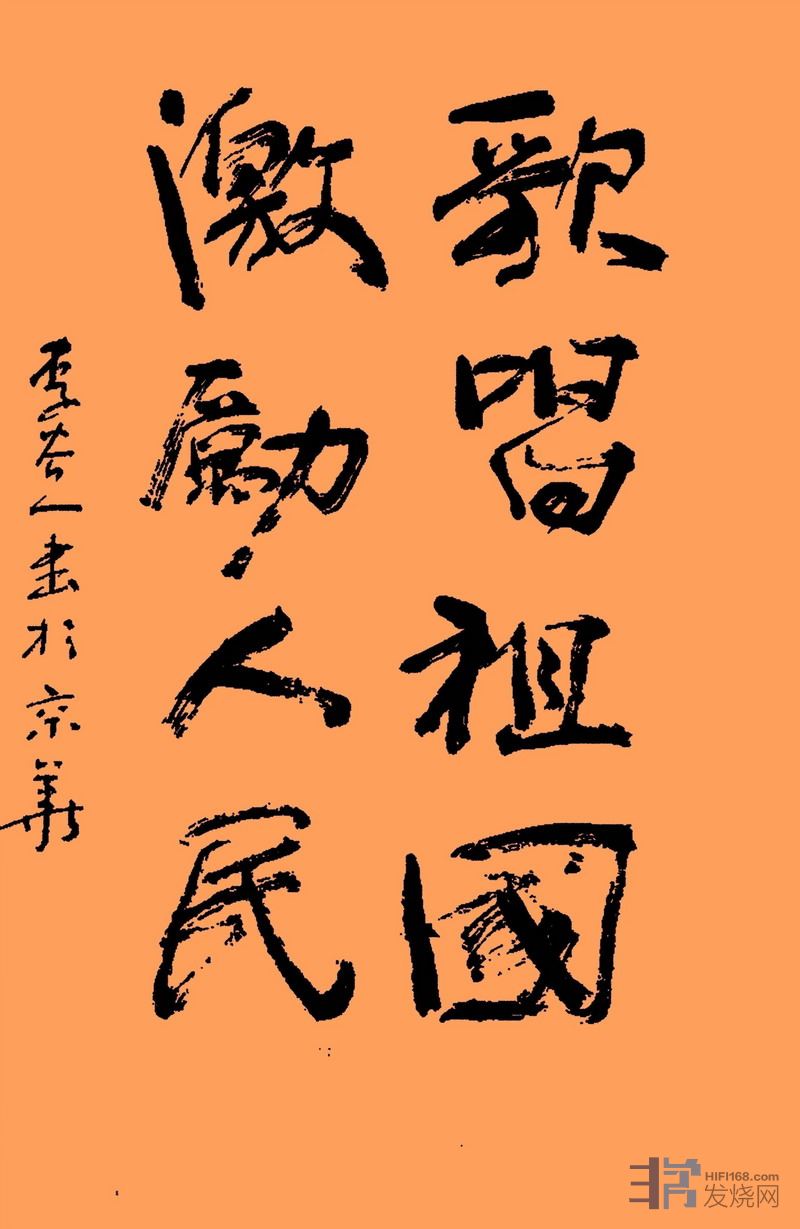 歌唱祖國
激勵人民
李谷人書於京華
HIFI168.com
发烧网